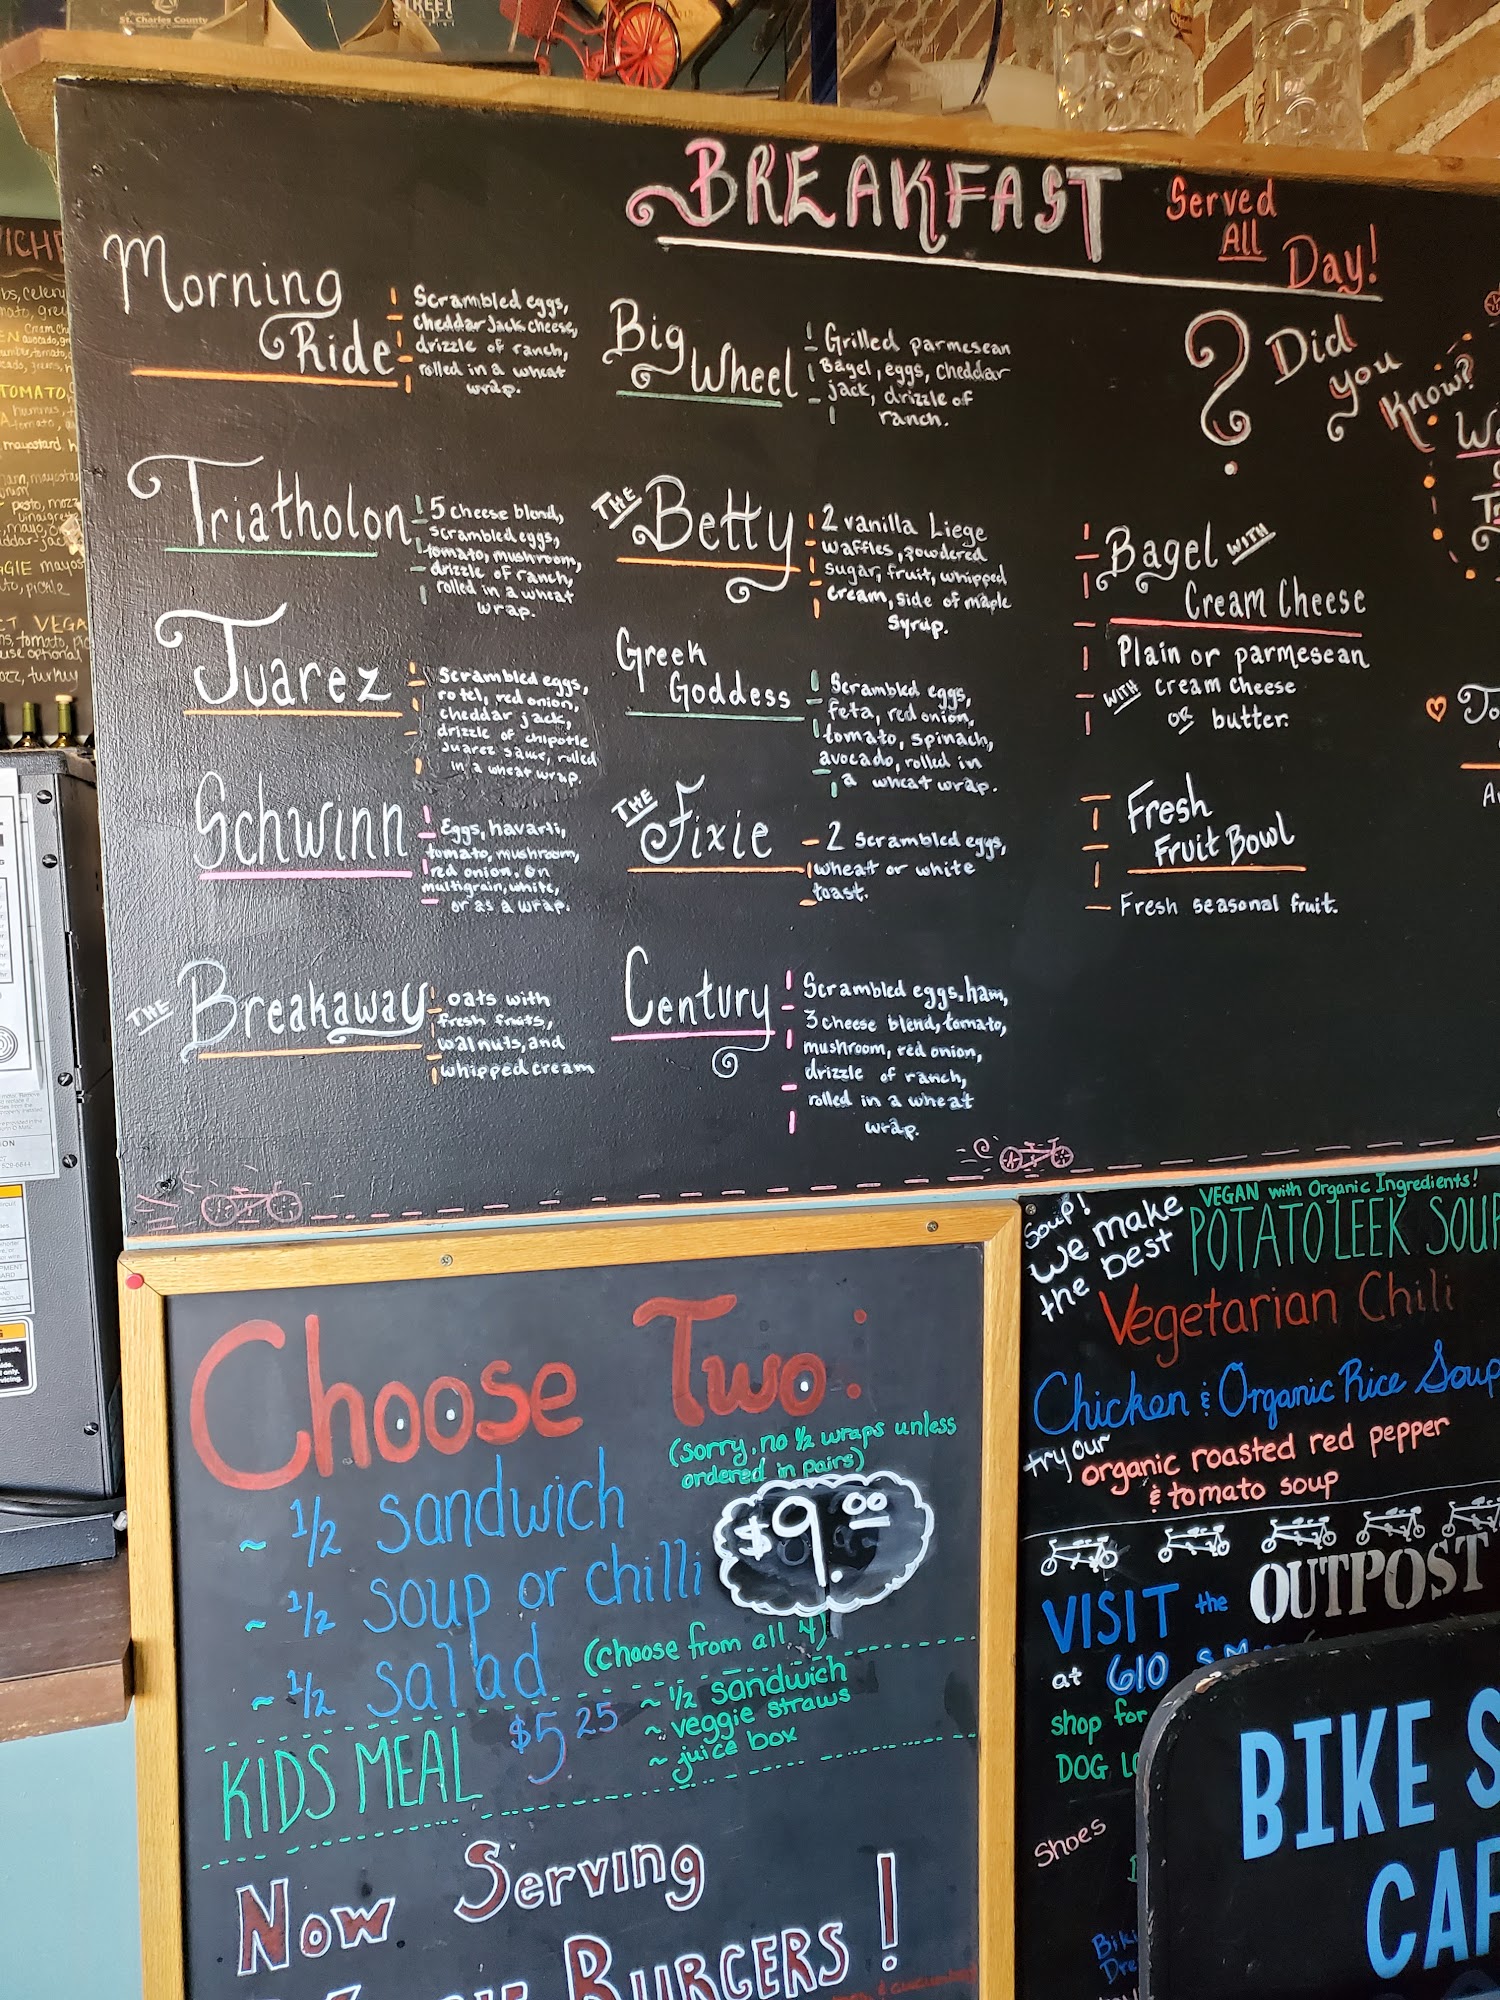 St. Charles County
STREET
BREAKFAST
Served
All
Day!
Morning
Ride
Scrambled eggs,
cheddar jack cheese,
drizzle of ranch,
rolled in a wheat
wrap.
Big
Wheel
Grilled parmesean
Bagel, eggs, cheddar
jack, drizzle of
ranch.
? Did
you
Know?
Triatholon
5 cheese blend,
scrambled eggs,
tomato, mushroom,
drizzle of ranch,
rolled in a wheat
wrap.
THE
Betty
2 vanilla Liege
waffles, powdered
sugar, fruit, whipped
cream, side of maple
syrup.
Bagel WITH
Cream Cheese
Plain or parmesean
WITH cream cheese
OR butter.
Juarez
Scrambled eggs,
rotel, red onion,
cheddar jack,
drizzle of chipotle
Juarez sauce, rolled
in a wheat wrap.
Greek
Goddess
Scrambled eggs,
feta, red onion,
tomato, spinach,
avocado, rolled in
a wheat wrap.
Schwinn
Eggs, havarti,
tomato, mushroom,
red onion. On
multigrain, white,
or as a wrap.
THE
Fixie
2 scrambled eggs,
wheat or white
toast.
Fresh
Fruit Bowl
Fresh seasonal fruit.
THE
Breakaway
oats with
fresh fruits,
walnuts, and
whipped cream
Century
Scrambled eggs, ham,
3 cheese blend, tomato,
mushroom, red onion,
drizzle of ranch,
rolled in a wheat
wrap.
Choose Two:
(sorry, no 1/2 wraps unless
ordered in pairs)
~ 1/2 sandwich
$9.00
~ 1/2 soup or chilli
~ 1/2 salad (choose from all 4)
KIDS MEAL $5.25
~ 1/2 sandwich
~ veggie straws
~ juice box
Now Serving
BURGERS!
Soup!
we make
the best
VEGAN with Organic Ingredients!
POTATO LEEK SOUP
Vegetarian Chili
Chicken & Organic Rice Soup
try our
organic roasted red pepper
& tomato soup
OUTPOST
VISIT the
at 610 S.
shop for
DOG
Shoes
BIKE S
CAF